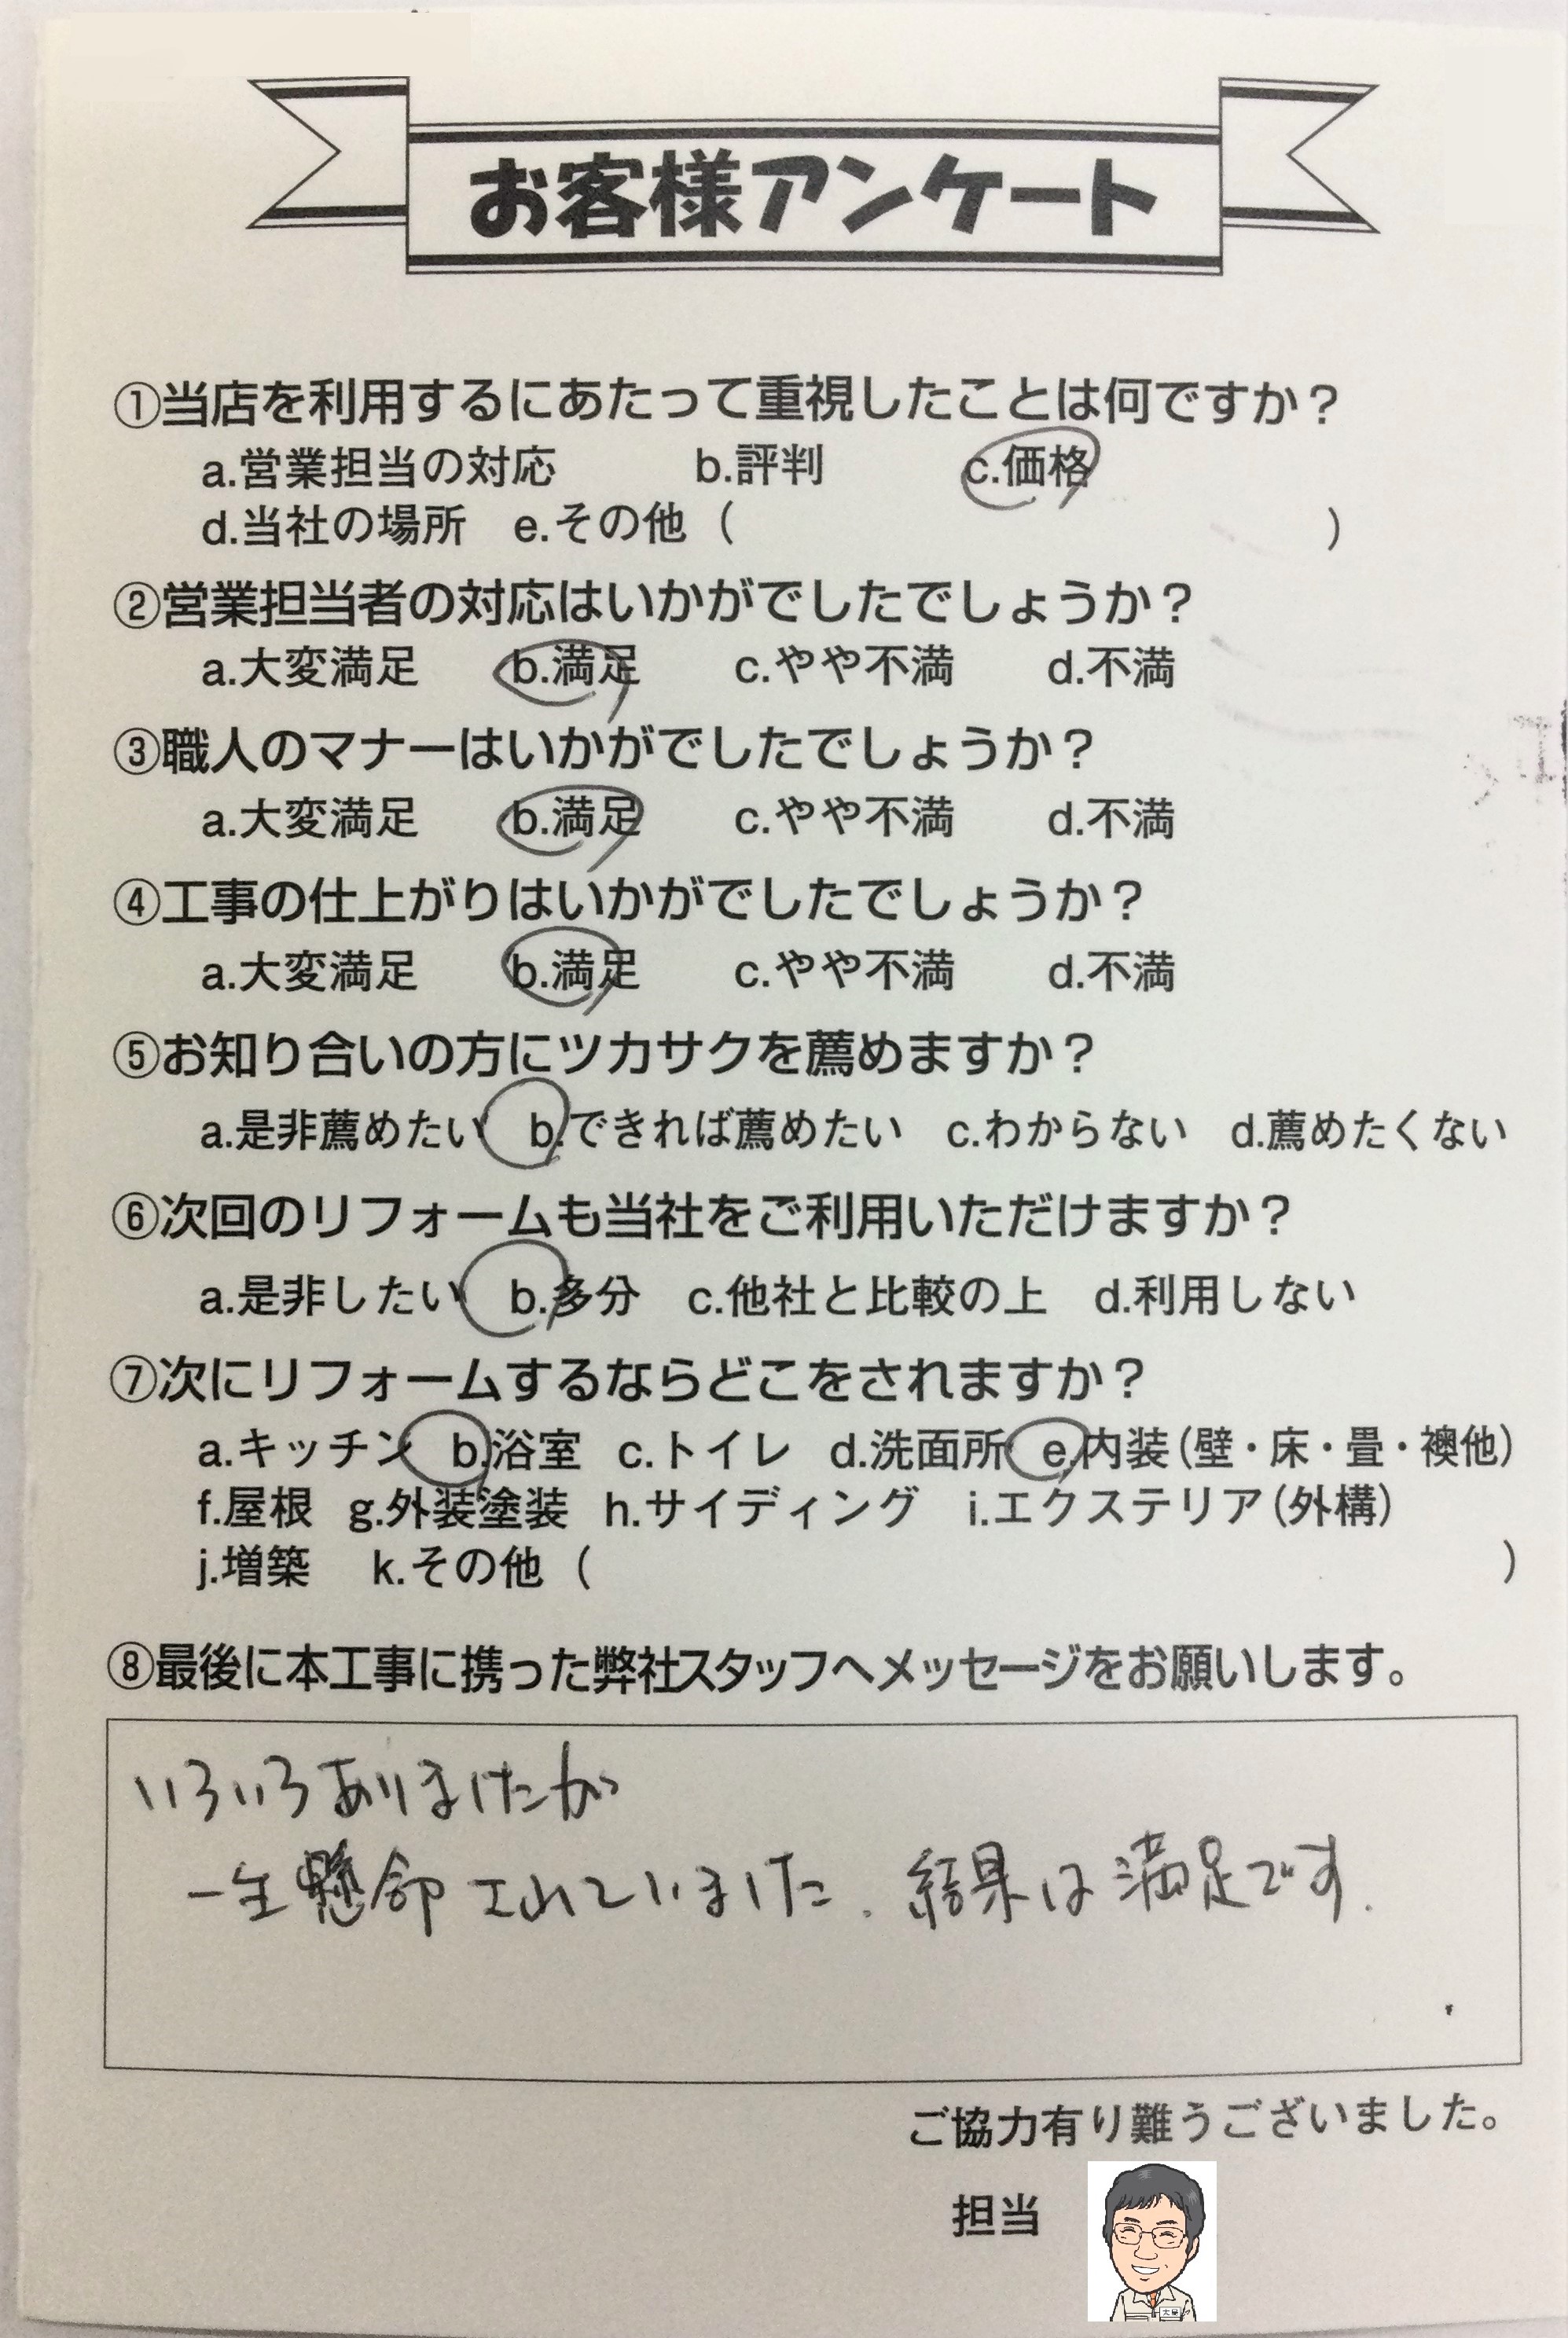 お客様アンケート
①当店を利用するにあたって重視したことは何ですか？
a.営業担当の対応 b.評判 c.価格
d.当社の場所 e.その他（ ）
②営業担当者の対応はいかがでしたでしょうか？
a.大変満足 b.満足 c.やや不満 d.不満
③職人のマナーはいかがでしたでしょうか？
a.大変満足 b.満足 c.やや不満 d.不満
④工事の仕上がりはいかがでしたでしょうか？
a.大変満足 b.満足 c.やや不満 d.不満
⑤お知り合いの方にツカサクを薦めますか？
a.是非薦めたい b.できれば薦めたい c.わからない d.薦めたくない
⑥次回のリフォームも当社をご利用いただけますか？
a.是非したい b.多分 c.他社と比較の上 d.利用しない
⑦次にリフォームするならどこをされますか？
a.キッチン b.浴室 c.トイレ d.洗面所 e.内装（壁・床・畳・襖他）
f.屋根 g.外装塗装 h.サイディング i.エクステリア（外構）
j.増築 k.その他（ ）
⑧最後に本工事に携った弊社スタッフへメッセージをお願いします。
いろいろありましたが
一生懸命されていました．結果は満足です．
ご協力有り難うございました。
担当